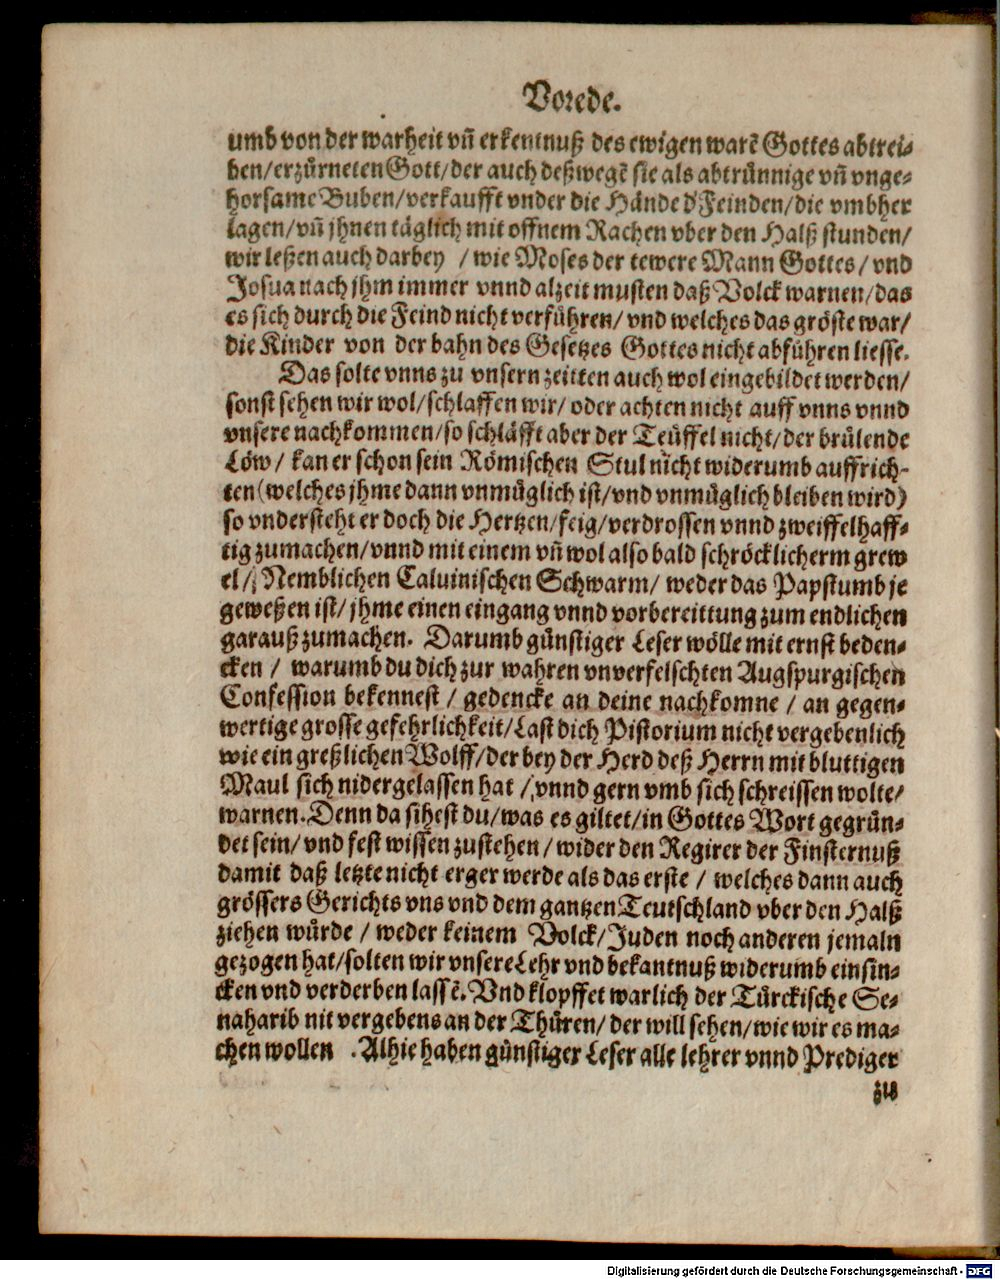 Vorede.
umb von der warheit vn̄ erkentnuß des ewigen warē Gottes abtrei-
ben/erzürneten Gott/der auch deßwegē sie als abtrünnige vn̄ vnge-
horsame Buben/verkaufft vnder die Hände d' Feinden/die vmbher
lagen/vn̄ jhnen täglich mit offnem Rachen vber den Halß stunden/
wir leßen auch darbey / wie Moses der tewere Mann Gottes/ vnd
Josua nach jhm immer vnnd alzeit musten daß Volck warnen/das
es sich durch die Feind nicht verführen/ vnd welches das gröste war/
die Kinder von der bahn des Gesetzes Gottes nicht abführen liesse.
Das solte vnns zu vnsern zeitten auch wol eingebildet werden/
sonst sehen wir wol/schlaffen wir/ oder achten nicht auff vnns vnnd
vnsere nachkommen/so schläfft aber der Teüffel nicht/der brülende
Löw/ kan er schon sein Römischen Stul nicht widerumb auffrich-
ten(welches jhme dann vnmüglich ist/vnd vnmüglich bleiben wird)
so vndersteht er doch die Hertzen/feig/verdrossen vnnd zweiffelhaff-
tig zumachen/vnnd mit einem vn̄ wol also bald schröcklicherm grew
el/ Nemblichen Caluinischen Schwarm/ weder das Papstumb je
geweßen ist/ jhme einen eingang vnnd vorbereittung zum endlichen
garauß zumachen. Darumb günstiger Leser wölle mit ernst beden-
cken / warumb du dich zur wahren vnverfelschten Augspurgischen
Confession bekennest / gedencke an deine nachkomne / an gegen-
wertige grosse gefehrlichkeit/Last dich Pistorium nicht vergebenlich
wie ein greßlichen Wolff/der bey der Herd deß Herrn mit bluttigen
Maul sich nidergelassen hat / vnnd gern vmb sich schreissen wolte/
warnen. Denn da sihest du/was es giltet/in Gottes Wort gegrün-
det sein/ vnd fest wissen zustehen/ wider den Regirer der Finsternuß
damit daß letzte nicht erger werde als das erste / welches dann auch
grössers Gerichts vns vnd dem gantzen Teutschland vber den Halß
ziehen würde / weder keinem Volck/Juden noch anderen jemaln
gezogen hat/solten wir vnsere Lehr vnd bekantnuß widerumb einsin-
cken vnd verderben lassē. Vnd klopffet warlich der Türckische Se-
naharib nit vergebens an der Thüren/ der will sehen/wie wir es ma-
chen wollen . Alhie haben günstiger Leser alle lehrer vnnd Prediger
zu
Digitalisierung gefördert durch die Deutsche Forschungsgemeinschaft - DFG